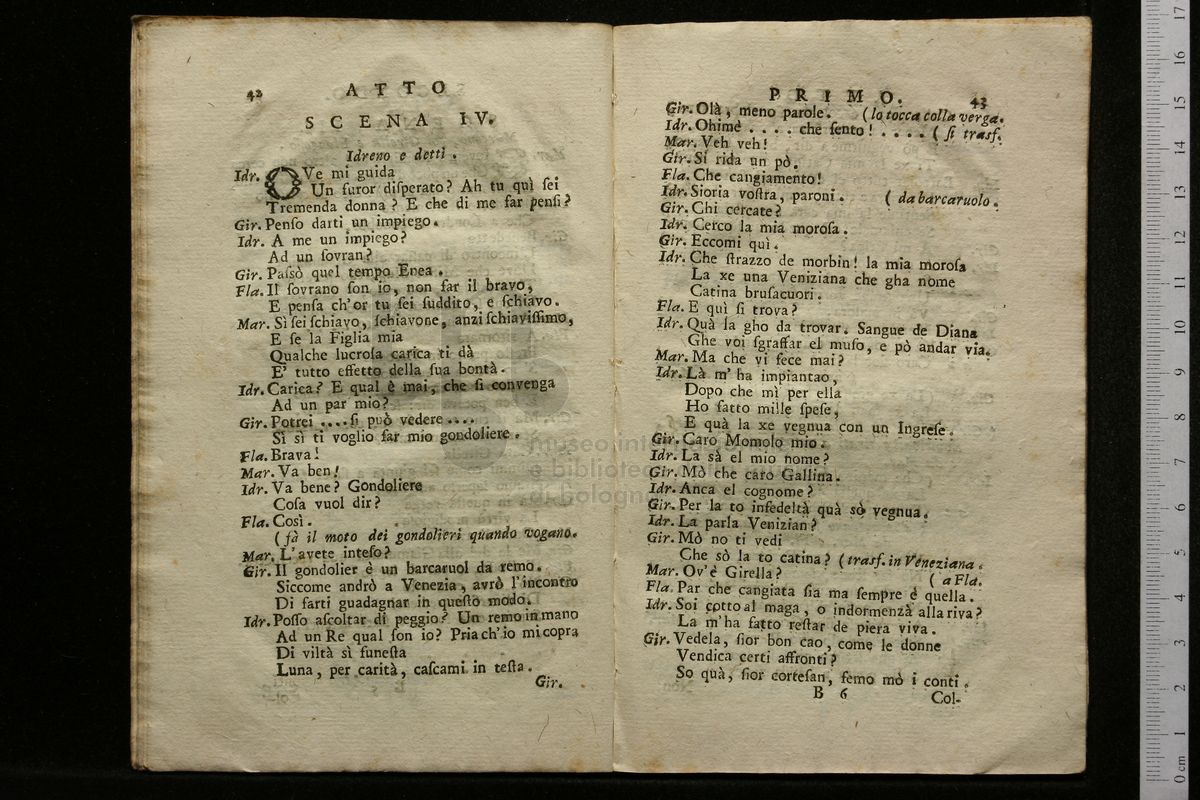 42 ATTO
SCENA IV.
Idreno e detti.
Idr. OVe mi guida
Un furor disperato? Ah tu quì sei
Tremenda donna? E che di me far pensi?
Gir. Penso darti un impiego.
Idr. A me un impiego?
Ad un sovran?
Gir. Passò quel tempo Enea.
Fla. Il sovrano son io, non far il bravo,
E pensa ch'or tu sei suddito, e schiavo.
Mar. Sì sei schiavo, schiavone, anzi schiavissimo,
E se la Figlia mia
Qualche lucrosa carica ti dà
E' tutto effetto della sua bontà.
Idr. Carica? E qual è mai, che si convenga
Ad un par mio?
Gir. Potrei .... si può vedere ....
Sì sì ti voglio far mio gondoliere.
Fla. Brava!
Mar. Va ben!
Idr. Va bene? Gondoliere
Cosa vuol dir?
Fla. Così.
(fà il moto dei gondolieri quando vogano.
Mar. L'avete inteso?
Gir. Il gondolier è un barcaruol da remo.
Siccome andrò a Venezia, avrò l'incontro
Di farti guadagnar in questo modo.
Idr. Posso ascoltar di peggio? Un remo in mano
Ad un Re qual son io? Pria ch'io mi copra
Di viltà sì funesta
Luna, per carità, cascami in testa.
Gir.
PRIMO. 43
Gir. Olà, meno parole. (lo tocca colla verga.
Idr. Ohimè .... che sento! .... (si trasf.
Mar. Veh veh!
Gir. Si rida un pò.
Fla. Che cangiamento!
Idr. Sioria vostra, paroni. (da barcaruolo.
Gir. Chi cercate?
Idr. Cerco la mia morosa.
Gir. Eccomi quì.
Idr. Che strazzo de morbin! la mia morosa
La xe una Veniziana che gha nome
Catina brusacuori.
Fla. E quì si trova?
Idr. Quà la gho da trovar. Sangue de Diana
Ghe voi sgraffar el muso, e pò andar via.
Mar. Ma che vi fece mai?
Idr. Là m'ha impiantao,
Dopo che mì per ella
Ho fatto mille spese,
E quà la xe vegnua con un Ingrese.
Gir. Caro Momolo mio.
Idr. La sà el mio nome?
Gir. Mò che caro Gallina.
Idr. Anca el cognome?
Gir. Per la to infedeltà quà sò vegnua.
Idr. La parla Venizian?
Gir. Mò no ti vedi
Che sò la to catina? (trasf. in Veneziana.
Mar. Ov'è Girella? (a Fla.
Fla. Par che cangiata sia ma sempre è quella.
Idr. Soi cotto al maga, o indormenzà alla riva?
La m'ha fatto restar de piera viva.
Gir. Vedela, sior bon cao, come le donne
Vendica certi affronti?
So quà, sior cortesan, femo mò i conti.
B 6 Col-